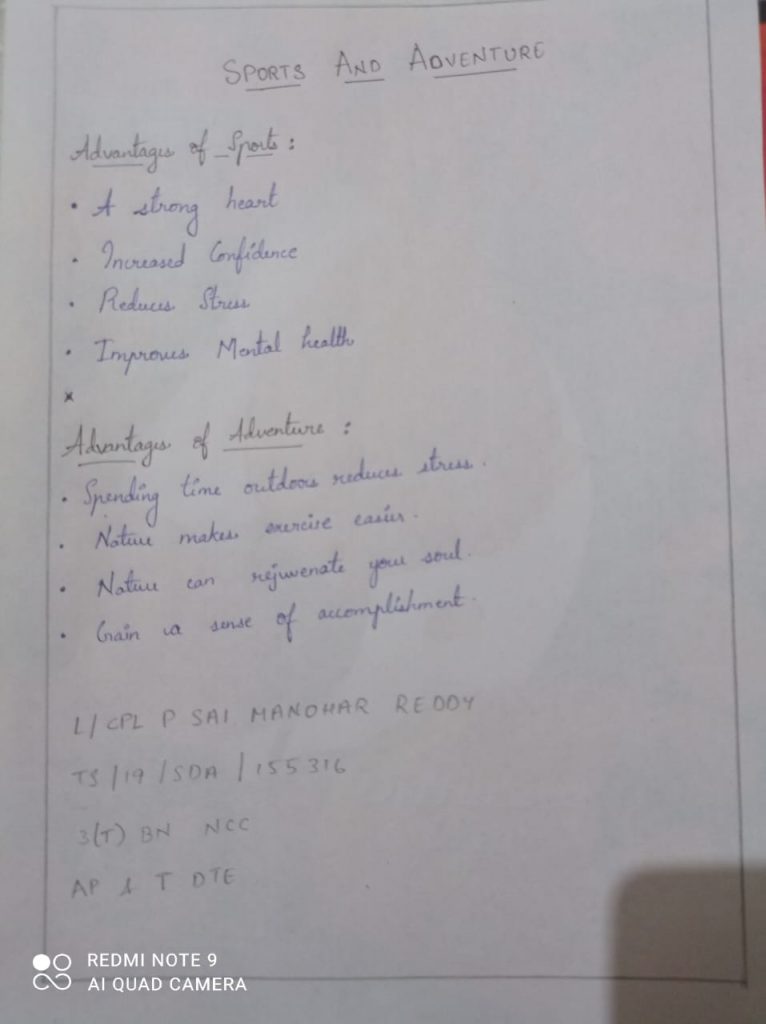 SPORTS AND ADVENTURE
Advantages of Sports :
• A strong heart
• Increased Confidence
• Reduces Stress
• Improves Mental health
x
Advantages of Adventure :
• Spending time outdoors reduces stress.
• Nature makes exercise easier.
• Nature can rejuvenate your soul.
• Gain a sense of accomplishment.
L/CPL P SAI MANOHAR REDDY
TS/19/SDA/155316
3(T) BN NCC
AP & T DTE
REDMI NOTE 9
AI QUAD CAMERA